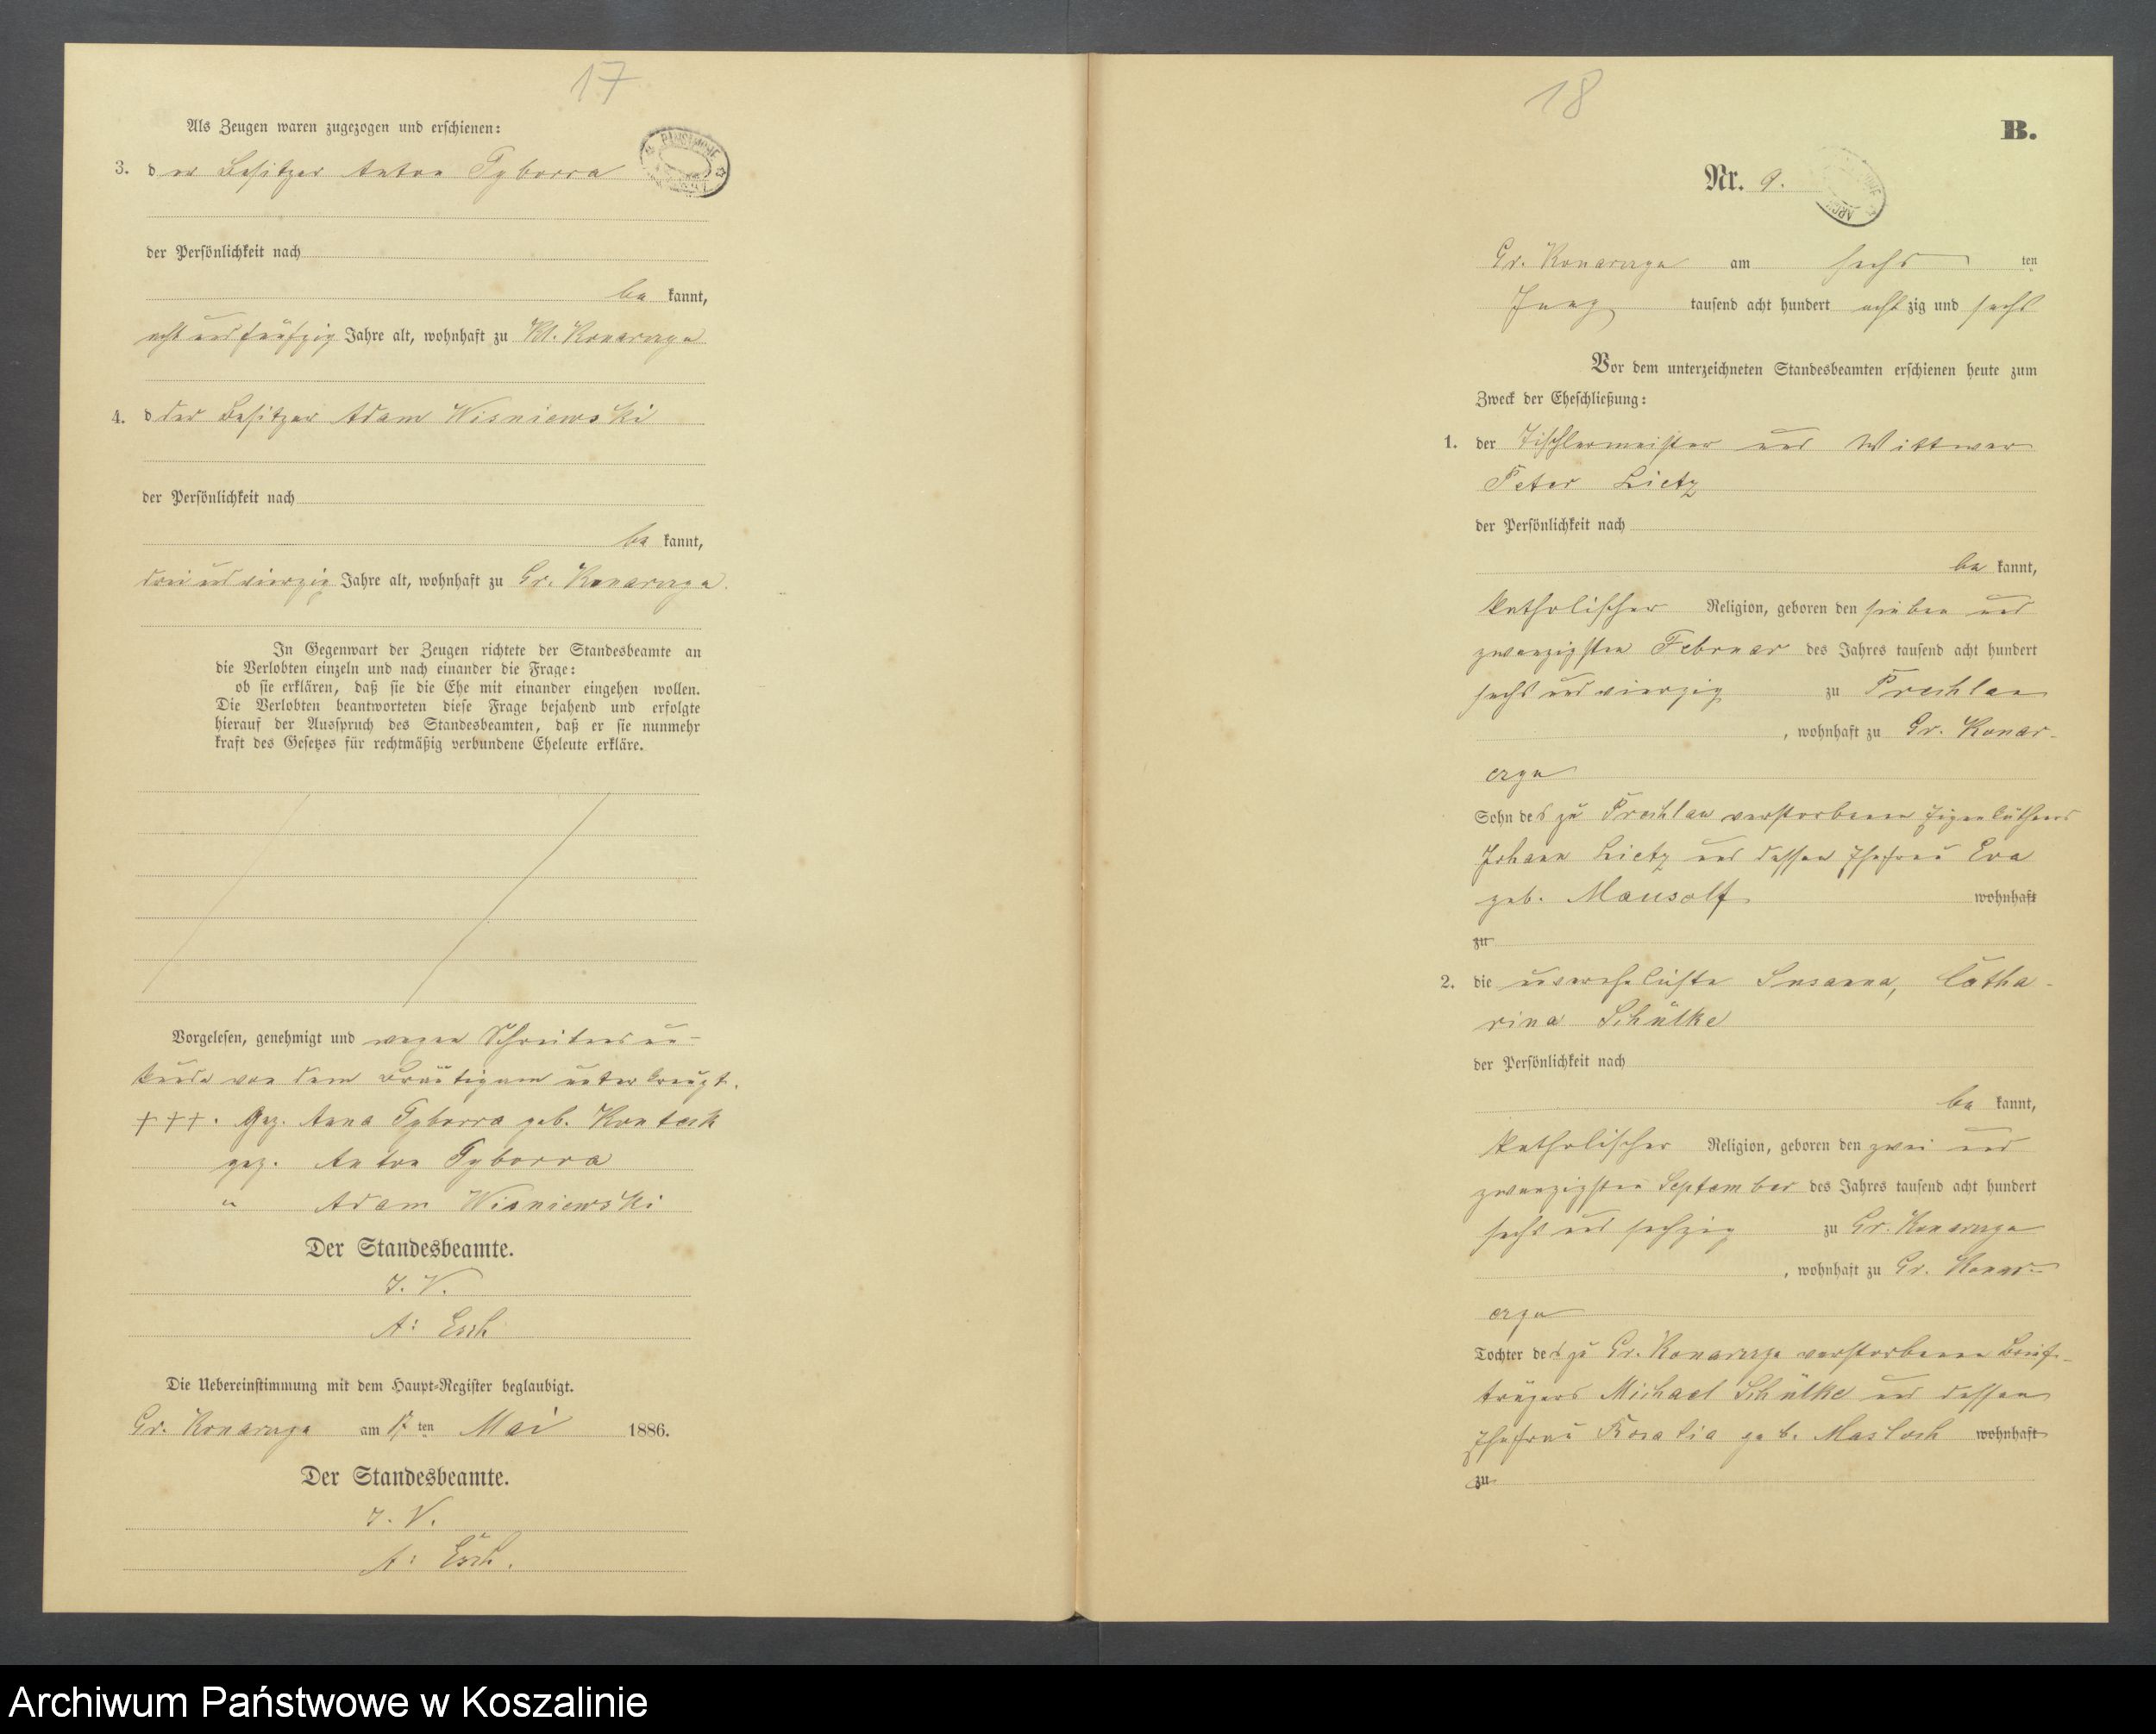 17
Als Zeugen waren zugezogen und erschienen:
3. der Besitzer Anton Tyborra
der Persönlichkeit nach
be kannt,
acht und fünfzig Jahre alt, wohnhaft zu Kl. Konarczyn
4. d der Besitzer Adam Wisniewski
der Persönlichkeit nach
be kannt,
drei und vierzig Jahre alt, wohnhaft zu Gr. Konarczyn.
In Gegenwart der Zeugen richtete der Standesbeamte an
die Verlobten einzeln und nach einander die Frage:
ob sie erklären, daß sie die Ehe mit einander eingehen wollen.
Die Verlobten beantworteten diese Frage bejahend und erfolgte
hierauf der Ausspruch des Standesbeamten, daß er sie nunmehr
kraft des Gesetzes für rechtmäßig verbundene Eheleute erkläre.
Vorgelesen, genehmigt und wegen Schreibensun-
kunde von dem Bräutigam unterkreuzt.
+++. Gez. Anna Tyborra geb. Kontek
gez. Anton Tyborra
" Adam Wisniewski
Der Standesbeamte.
J. V.
A: Esch
Die Uebereinstimmung mit dem Haupt-Register beglaubigt.
Gr. Konarczyn am 17 ten Mai 1886.
Der Standesbeamte.
J. V.
A: Esch.
18
B.
Nr. 9.
Gr. Konarczyn am sechs ten
Juny tausend acht hundert acht zig und sechs
Vor dem unterzeichneten Standesbeamten erschienen heute zum
Zweck der Eheschließung:
1. der Tischlermeister und Wittwer
Peter Lietz
der Persönlichkeit nach
be kannt,
katholischer Religion, geboren den sieben und
zwanzigsten Februar des Jahres tausend acht hundert
sechs und vierzig zu Prechlau
, wohnhaft zu Gr. Konar-
czyn
Sohn des zu Prechlau verstorbenen Eigenkäthners
Johann Lietz und dessen Ehefrau Eva
geb. Mausolf wohnhaft
zu
2. die unverehelichte Susanna, Catha-
rina Schülke
der Persönlichkeit nach
be kannt,
katholischer Religion, geboren den zwei und
zwanzigsten September des Jahres tausend acht hundert
sechs und sechzig zu Gr. Konarczyn
, wohnhaft zu Gr. Konar-
czyn
Tochter des zu Gr. Konarczyn verstorbenen Brief-
trägers Michael Schülke und dessen
Ehefrau Rosalia geb. Masloch wohnhaft
zu
Archiwum Państwowe w Koszalinie